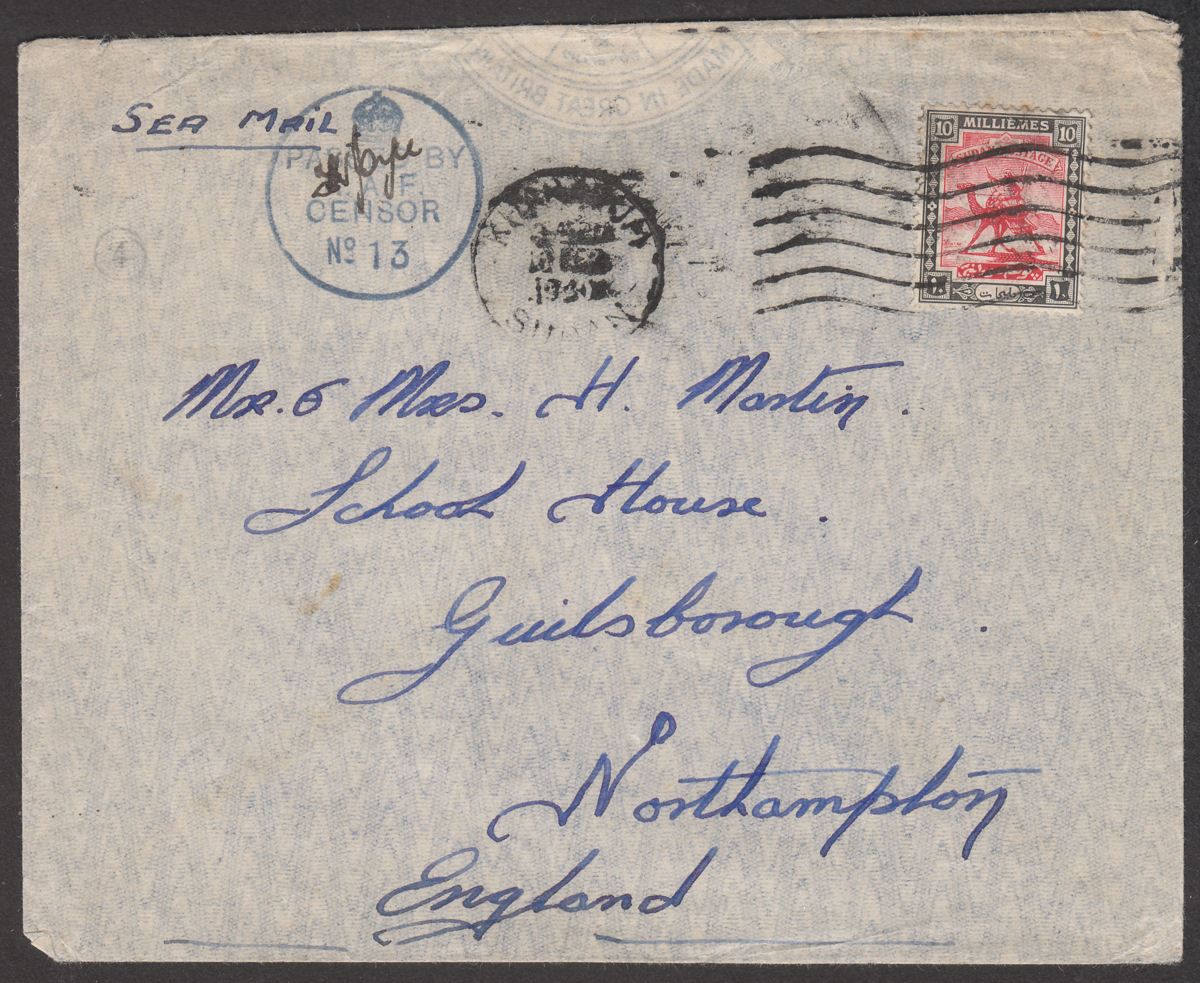 MADE IN GREAT BRITAIN
SEA MAIL
PASSED BY
R.A.F.
CENSOR
Nº 13
4
KHARTOUM
1940
SUDAN
10 MILLIÈMES 10
SUDAN POSTAGE
١٠ مليمات ١٠
Mr. & Mrs. H. Martin.
School House.
Guilsborough.
Northampton
England